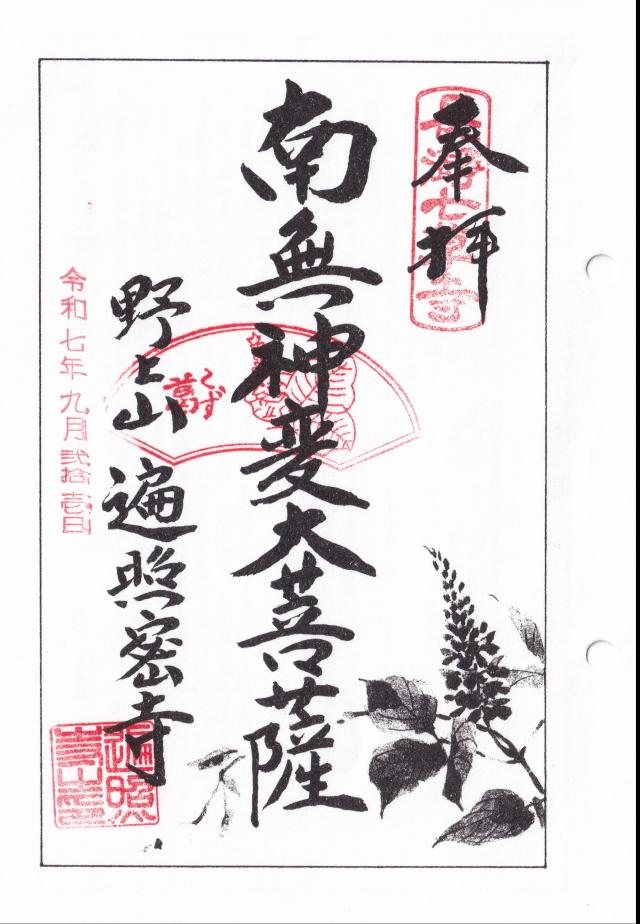 奉拝
長瀞七草寺
南無神変大菩薩
くず
葛
野上山 遍照密寺
令和七年九月弐拾壱日